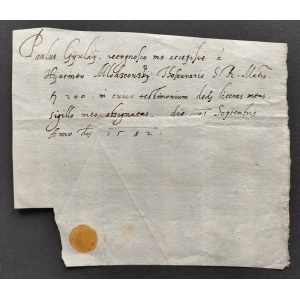 Paulus Gyulay recognosco me accepisse à
Hyacintho Młoszowsky Thesaurario S. R. Matis
200 in cuius testimonium dedi literas meas
sigillo meo obsignatas. die Septembris
Anno dni 1582.